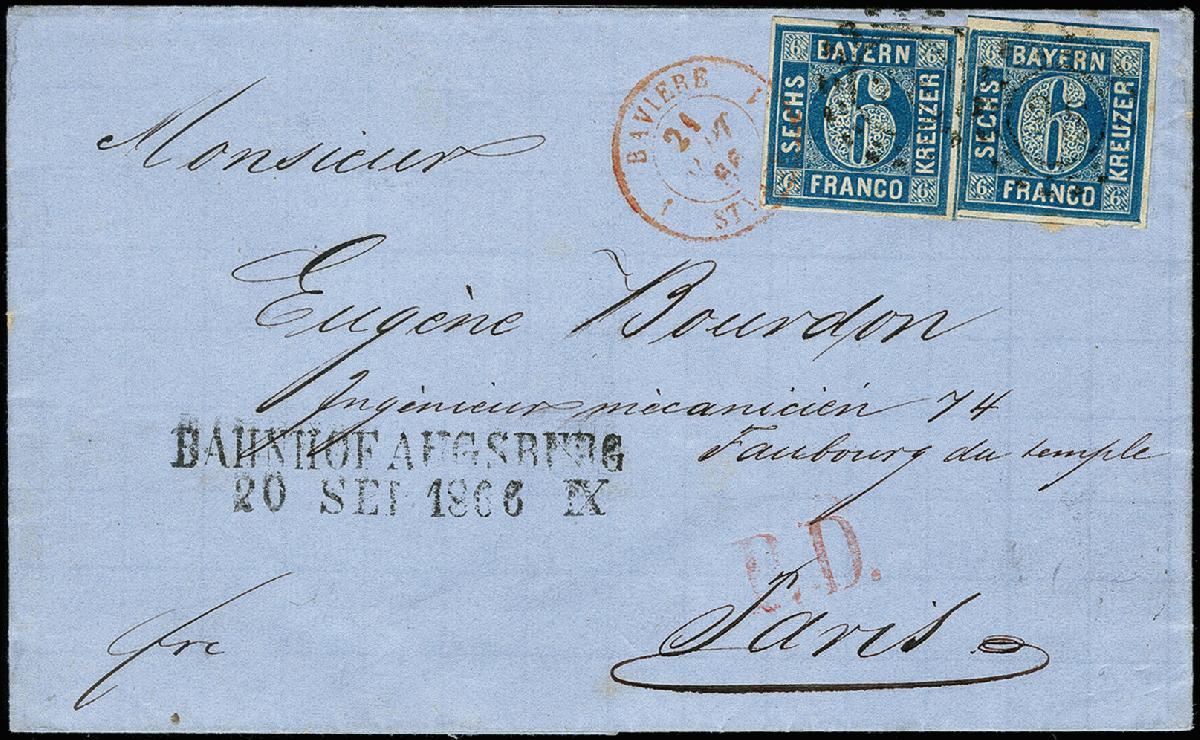 6 BAYERN 6
SECHS 6 KREUZER
6 FRANCO 6
6 BAYERN 6
SECHS 6 KREUZER
6 FRANCO 6
BAVIERE
21
1 ST
Monsieur
Eugène Bourdon
Ingénieur mècanicién 74
Faubourg du temple
BAHNHOF AUGSBURG
20 SEP 1866 IX
P.D.
Paris
frc